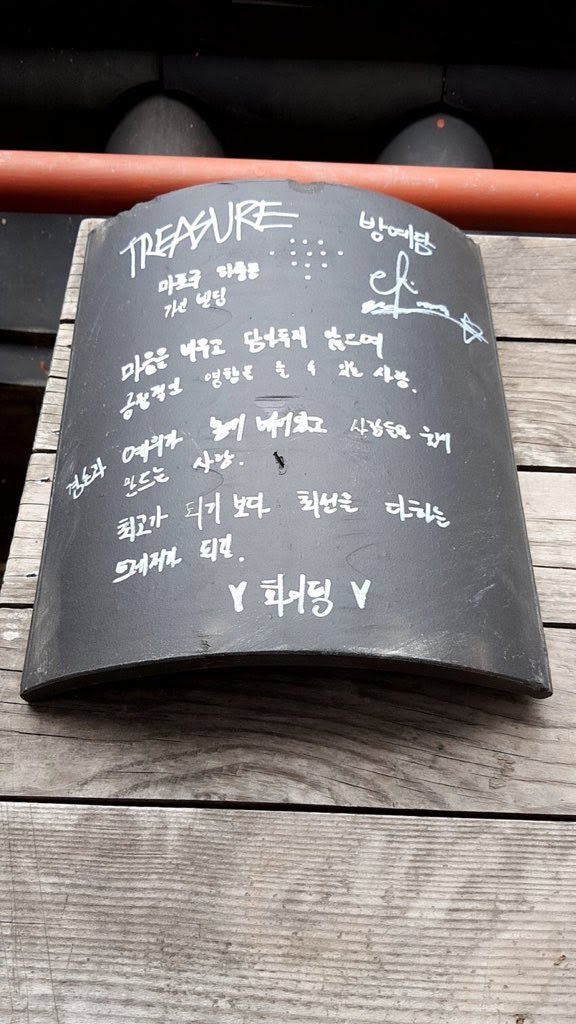 TREASURE
방예담
마포구
빌딩
마음은 비우고 담아두지 않으며
긍정적인 영향을 줄 수 있는 사람.
겸손과 예의가 몸에 배어있고 사람들을 웃게
만드는 사람.
최고가 되기 보다 최선을 다하는
트레저가 되길.
화이딩